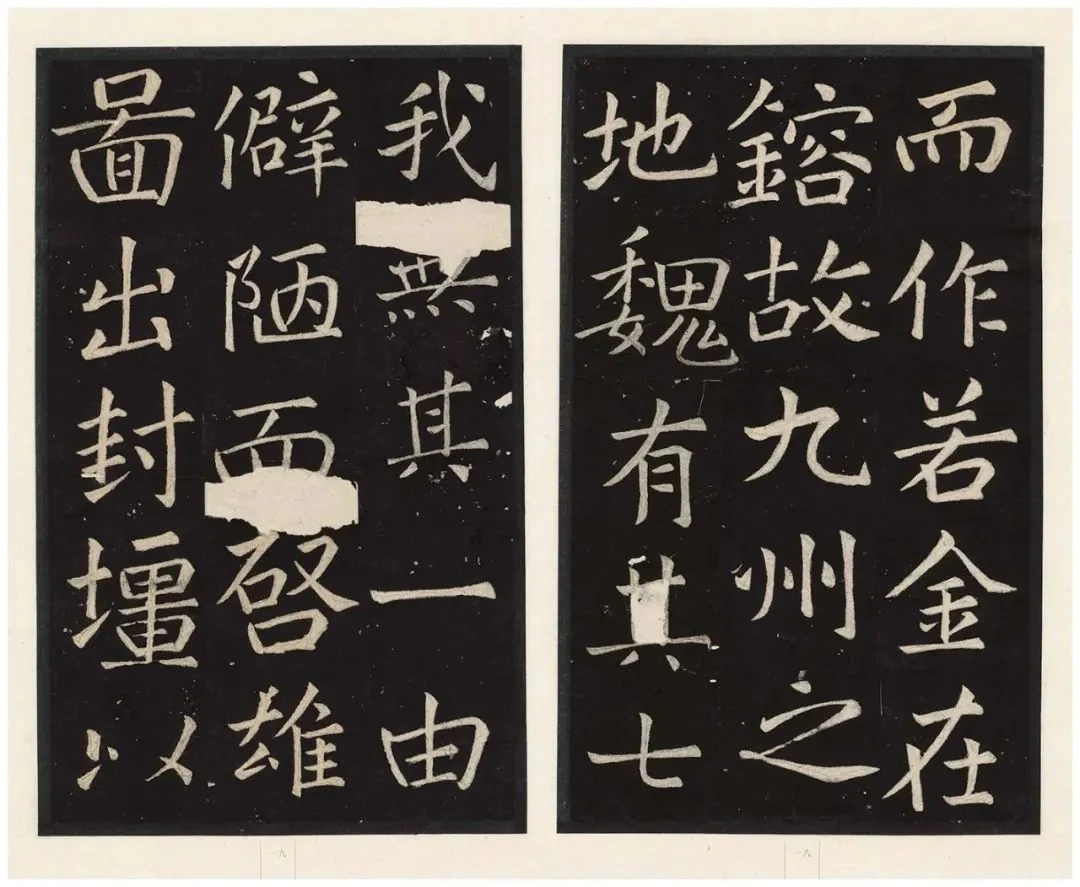 而作若金在
鎔故九州之
地魏有其七
一八
我無其一由
僻陋而啓雄
圖出封壃以
一九